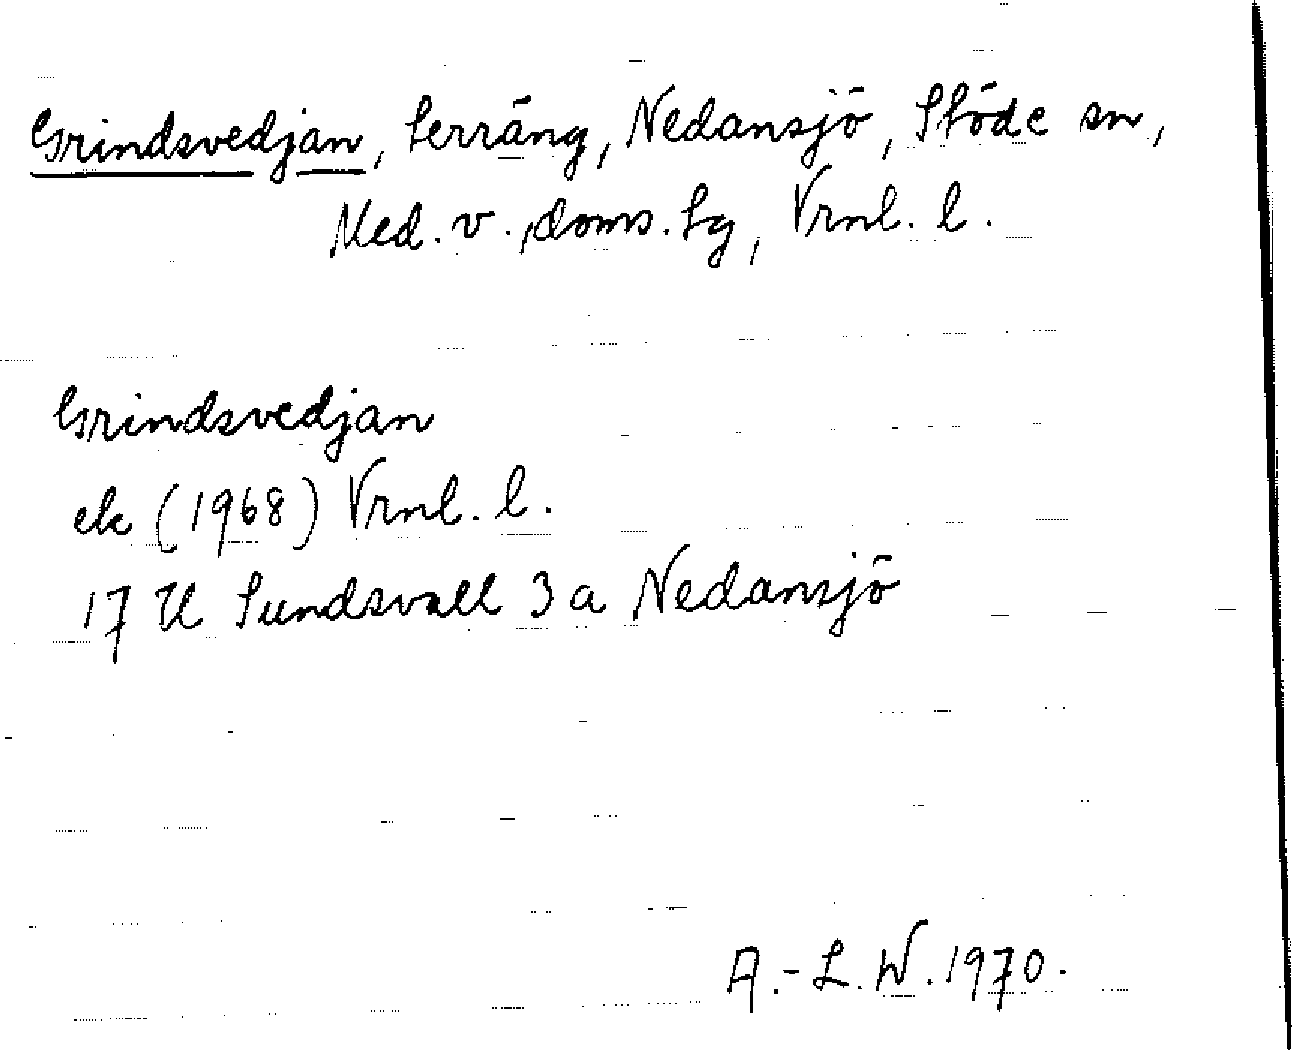 Grindsvedjan, terräng, Nedansjö, Stöde sn,
Med. v., doms. tg, Vrnl. l.
Grindsvedjan
ek (1968) Vrnl. l.
17 H Sundsvall 3 a Nedansjö
A.-L. W. 1970.